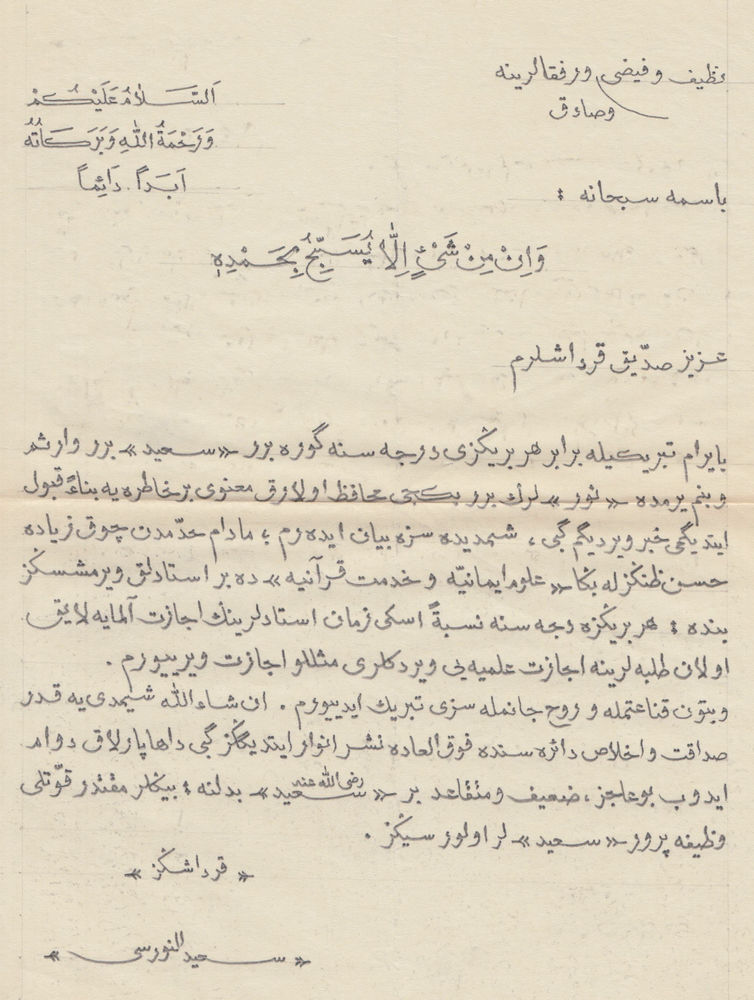 نظيف وفيضى ورفقالرينه
وصادق
اَلسَّلَامُ عَلَيْكُمْ
وَرَحْمَةُ اللّٰهِ وَبَرَكَاتُهُ
اَبَدًا دَائِمًا
باسمه سبحانه :
وَاِنْ مِنْ شَىْءٍ اِلَّا يُسَبِّحُ بِحَمْدِهٖ
عزيز صدّيق قرداشلرم
بايرام تبريكيله برابر هر بريڭزى درجه سنه گوره برر «سعيد» برر وارثم
وبنم يرمده «نور» لرك برر بكجى محافظ اولارق معنوى بر خاطره يه بناءً قبول
ايتديگمى خبر ويرديگم گبى ، شيمديده سزه بيان ايده رم ؛ مادام حدّمدن چوق زياده
حسن ظنڭزله بڭا «علوم ايمانيّه و خدمت قرآنيه» ده بر استادلق ويرمشسكز
بنده : هر بريڭزه درجه سنه نسبةً اسكى زمان استادلرينك اجازت آلمايه لايق
اولان طلبه لرينه اجازت علميه يى ويردكلرى مثللو اجازت ويرييورم .
وبتون قناعتمله و روح جانمله سزى تبريك ايدييورم . ان شاء الله شيمدى يه قدر
صداقت واخلاص دائره سنده فوق العاده نشر انوار ايتديگڭز گبى داها پارلاق دوام
ايدوب بو عاجز ، ضعيف ومتقاعد بر «سعيد رضى الله عنه» بدلنه ؛ بيڭلر مقتدر قوّتلى
وظيفه پرور «سعيد» لر اولورسيڭز .
« قرداشڭز »
« سعيد النورسى »